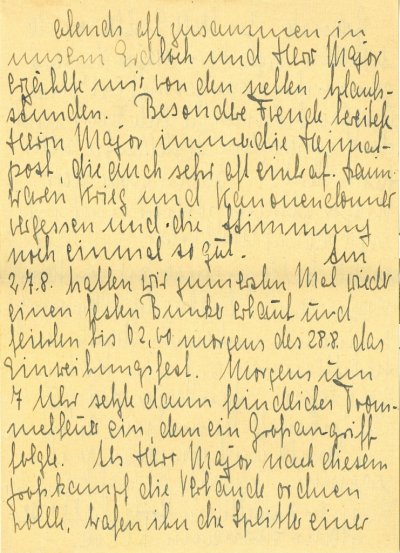 abends oft zusammen in
unserm Erdloch und Herr Major
erzählte mir von den Urlaubs-
stunden. Besondere Freude bereitete
Herrn Major immer die Heimat-
post, die auch sehr oft eintraf. Dann
waren Krieg und Kanonendonner
vergessen und die Stimmung
noch einmal so gut. Am
27.8. hatten wir zum ersten Mal wieder
einen festen Bunker erbaut und
feierten bis 02,00 morgens des 28.8. das
Einweihungsfest. Morgens um
7 Uhr setzte dann feindliches Trom-
melfeuer ein, dem ein Großangriff
folgte. Als Herr Major nach diesem
Großkampf die Verbände ordnen
wollte, trafen ihn die Splitter einer